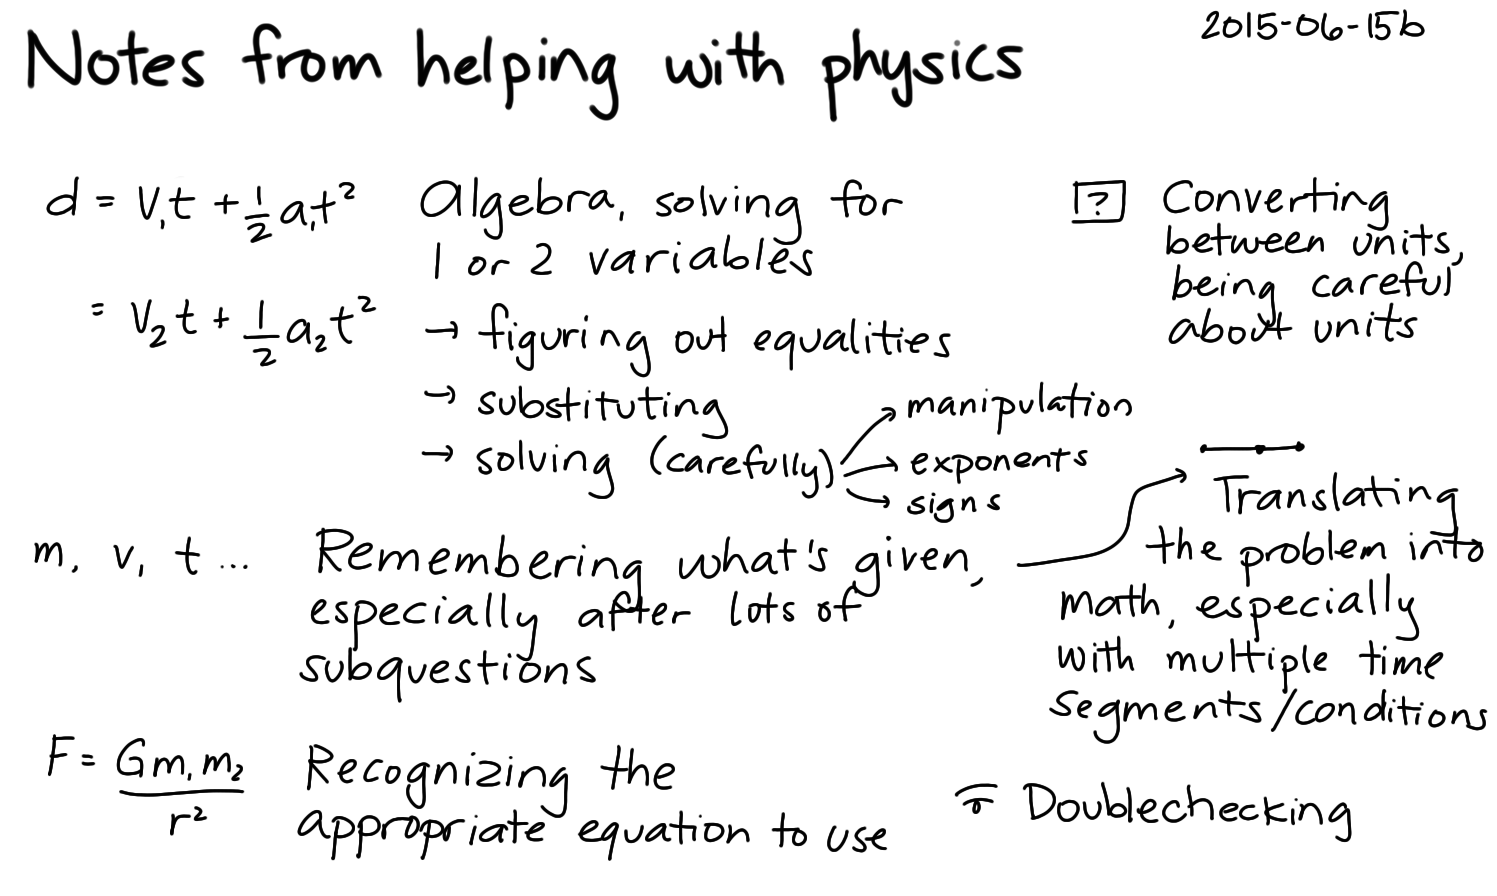 Notes from helping with physics
2015-06-15b
d = V₁t + ½ a₁t²
= V₂t + ½ a₂t²
Algebra, solving for
1 or 2 variables
→ figuring out equalities
→ substituting
→ solving (carefully)
manipulation
exponents
signs
? Converting
between units,
being careful
about units
m, v, t ... Remembering what's given,
especially after lots of
subquestions
Translating
the problem into
math, especially
with multiple time
segments/conditions
F = Gm₁m₂
r²
Recognizing the
appropriate equation to use
Doublechecking